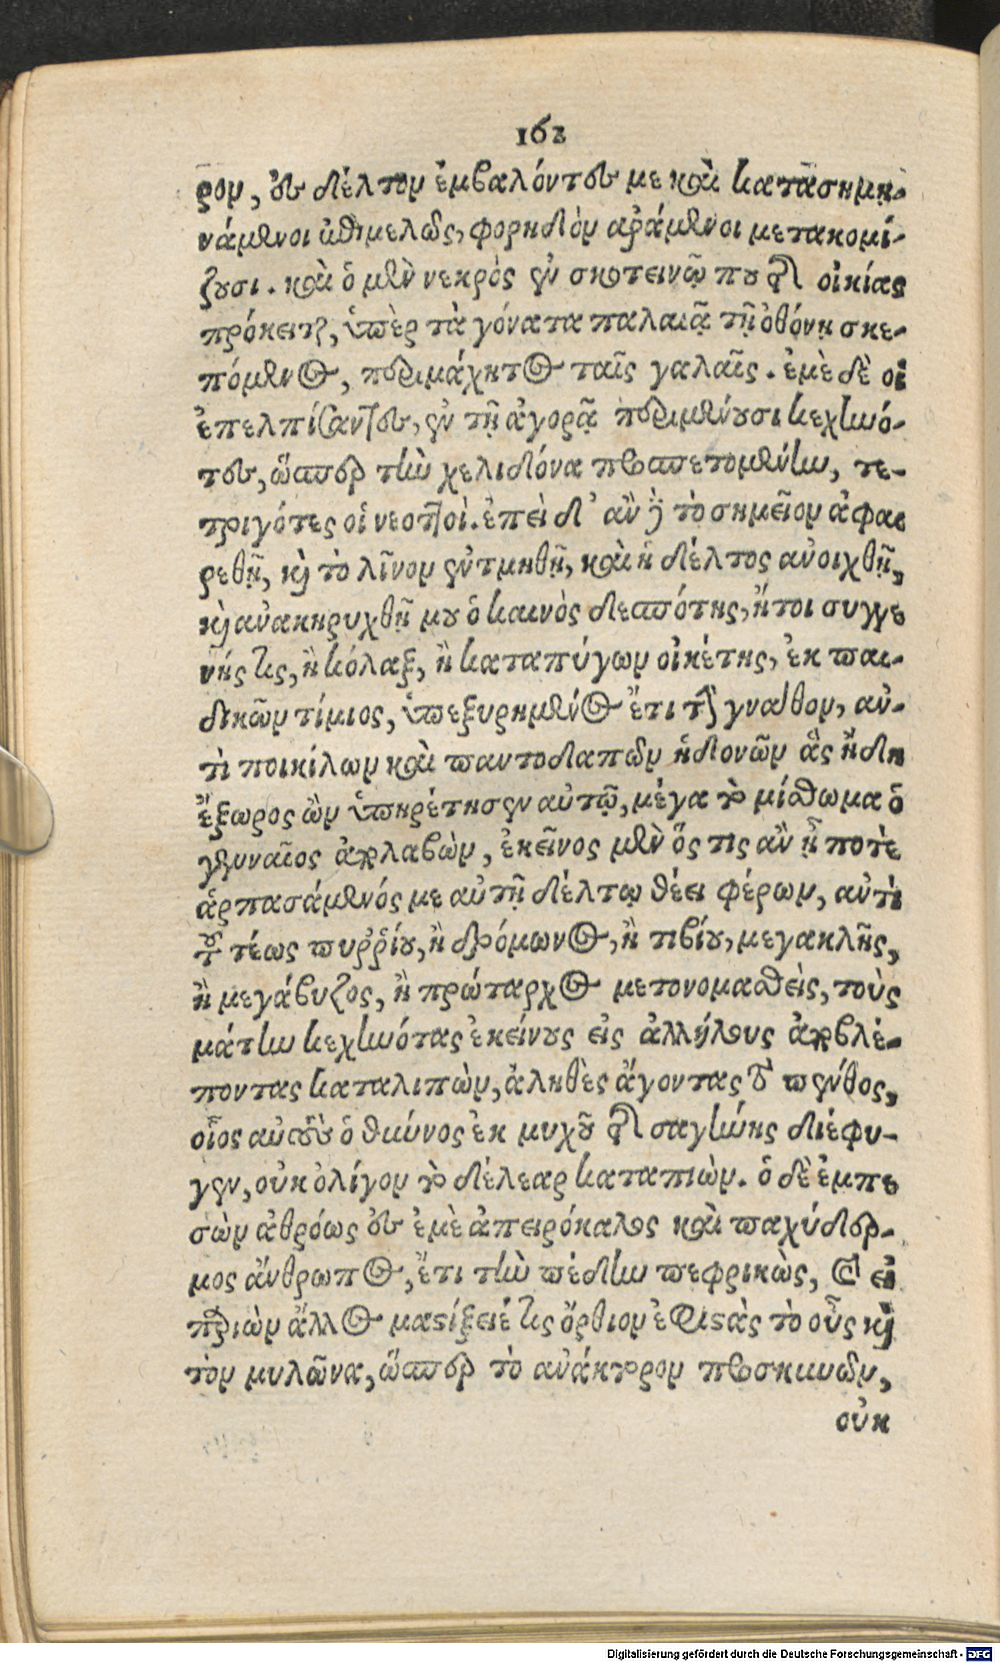 162
ρον, ἐς δέλτον ἐμβαλόντες με καὶ κατασημη-
νάμενοι ἐπιμελῶς, φορηδὸν ἀράμενοι μετακομί-
ζουσι. καὶ ὁ μὲν νεκρὸς ἐν σκοτεινῷ που τῆς οἰκίας
πρόκειται, ὑπὲρ τὰ γόνατα παλαιᾷ τῇ ὀθόνῃ σκε-
πόμενος, περιμάχητος ταῖς γαλαῖς. ἐμὲ δὲ οἱ
ἐπελπίσαντες, ἐν τῇ ἀγορᾷ περιμένουσι κεχηνό-
τες, ὥσπερ τὴν χελιδόνα προσπετομένην, τε-
τριγότες οἱ νεοττοὶ. ἐπεὶ δ' ἂν δὲ τὸ σημεῖον ἀφαι
ρεθῇ, καὶ τὸ λῖνον ἐντμηθῇ, καὶ ἡ δέλτος ἀνοιχθῇ,
καὶ ἀνακηρυχθῇ μου ὁ καινὸς δεσπότης, ἤτοι συγγε
νής τις, ἢ κόλαξ, ἢ καταπύγων οἰκέτης, ἐκ παι-
δικῶν τίμιος, ὑπεξυρημένος ἔτι τὴν γνάθον, ἀν-
τὶ ποικίλων καὶ παντοδαπῶν ἡδονῶν ἃς ἤδη
ἔξωρος ὢν ὑπηρέτησεν αὐτῷ, μέγα τὸ μίσθωμα ὁ
γενναῖος ἀπολαβὼν, ἐκεῖνος μὲν ὅς τις ἂν ᾖ ποτὲ
ἁρπασάμενός με αὐτῇ δέλτῳ θέει φέρων, ἀντὶ
τοῦ τέως πυῤῥίου, ἢ δρόμωνος, ἢ τιβίου, μεγακλῆς,
ἢ μεγάβυζος, ἢ πρώταρχος μετονομασθεὶς, τοὺς
μάτην κεχηνότας ἐκείνους εἰς ἀλλήλους ἀποβλέ-
ποντας καταλιπὼν, ἀληθὲς ἄγοντας τὸ πένθος,
οἷος αὐτοὺς ὁ θύννος ἐκ μυχοῦ τῆς σαγήνης διέφυ-
γεν, οὐκ ὀλίγον τὸ δέλεαρ καταπιὼν. ὁ δὲ ἐμπε
σὼν ἀθρόως ἐς ἐμὲ ἀπειρόκαλος καὶ παχύδερ-
μος ἄνθρωπος, ἔτι τὴν πέδην πεφρικὼς, καὶ εἰ
παριὼν ἄλλος μαστίξειέ τις ὄρθιον ἐφιστὰς τὸ οὖς καὶ
τὸν μυλῶνα, ὥσπερ τὸ ἀνάκτορον προσκυνῶν,
οὐκ
Digitalisierung gefördert durch die Deutsche Forschungsgemeinschaft - DFG